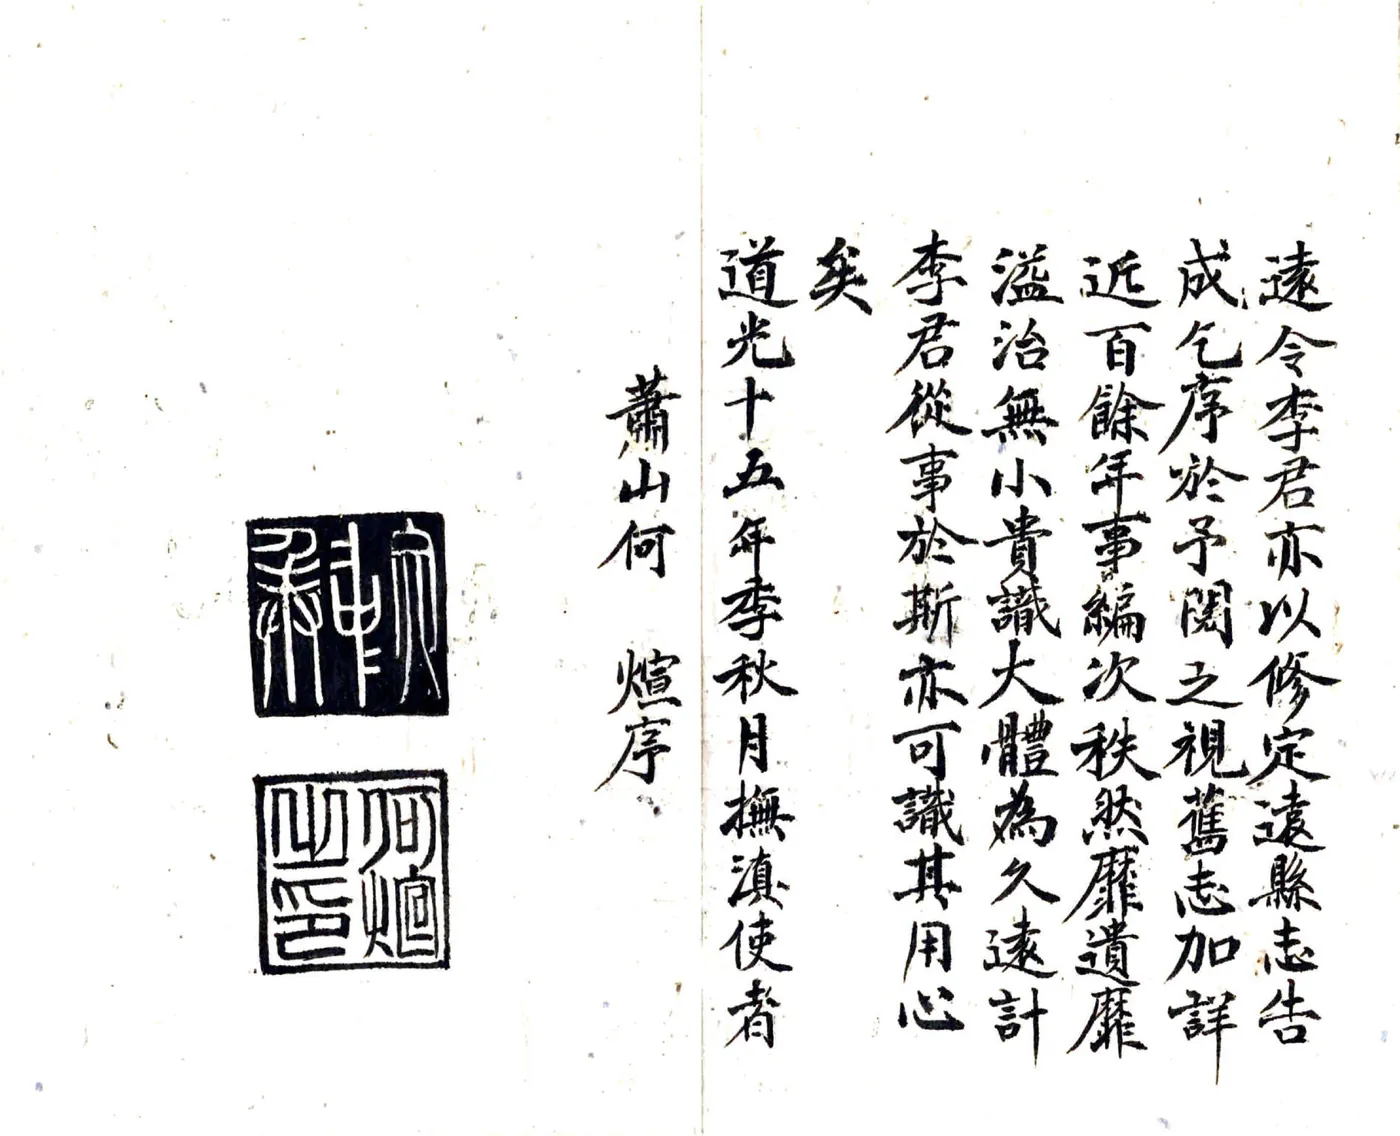 遠令李君亦以修定遠縣志告
成乞序於予閱之視舊志加詳
近百餘年事編次秩然靡遺靡
溢治無小貴識大體為久遠計
李君從事於斯亦可識其用心
矣
道光十五年季秋月撫滇使者
蕭山何 煊序
何煊
之印